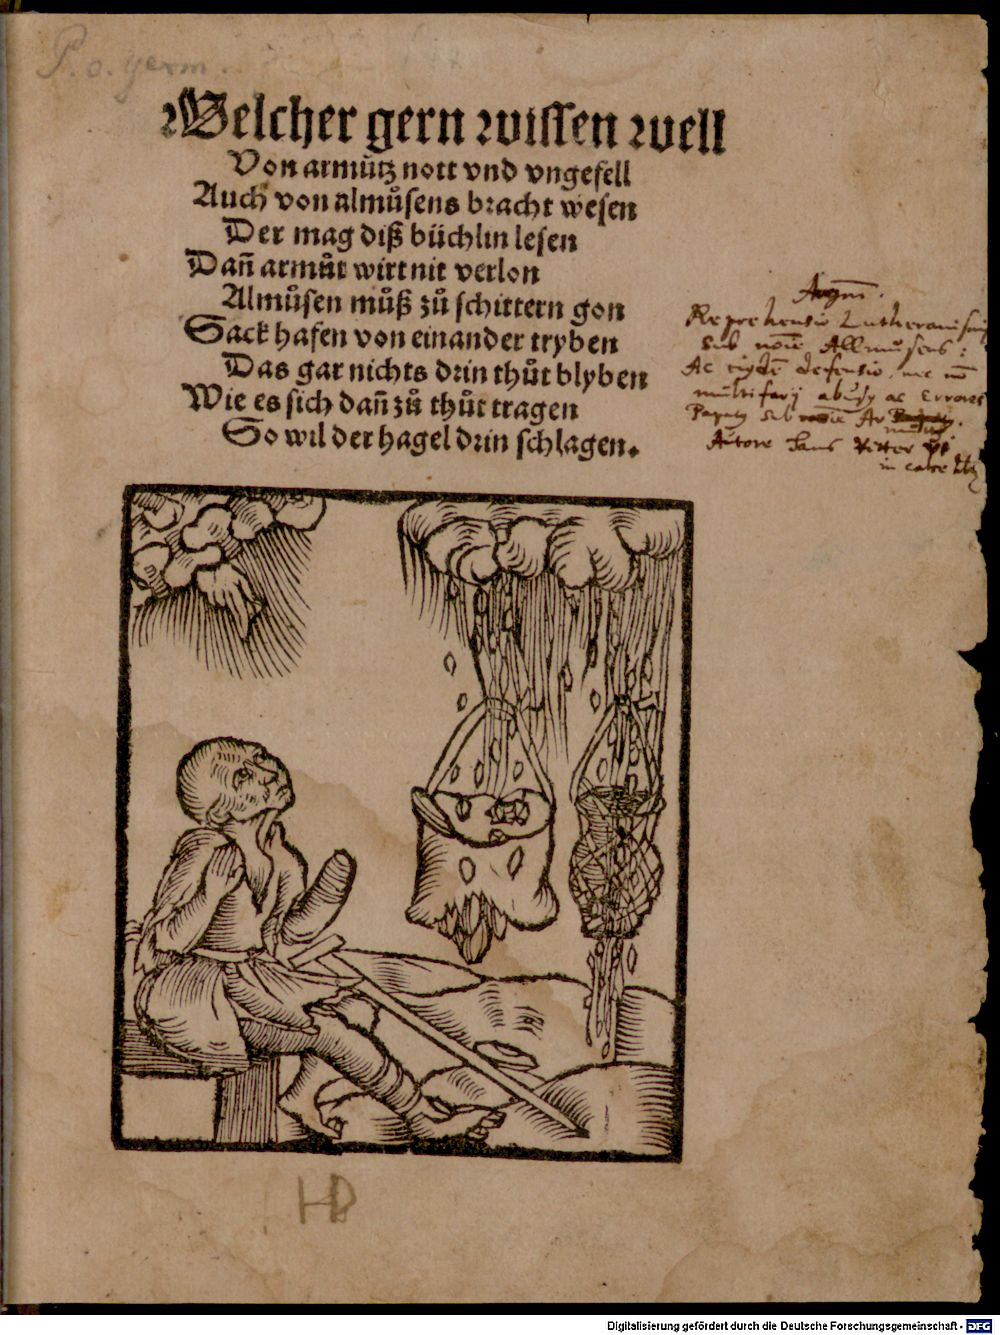 P. o. germ.
Welcher gern wissen well
Von armůtz nott vnd vngefell
Auch von almůsens bracht wesen
Der mag diß büchlin lesen
Dañ armůt wirt nit verlon
Almůsen můß zů schittern gon
Sack hafen von einander tryben
Das gar nichts drin thůt blyben
Wie es sich dañ zů thůt tragen
So wil der hagel drin schlagen.
Reprehensio Lutheranismi
sub Allmusens:
Ac defensio,
multifarij abusy ac Errores
sub
Autore Hans Ritter
in calce
HD
Digitalisierung gefördert durch die Deutsche Forschungsgemeinschaft - DFG